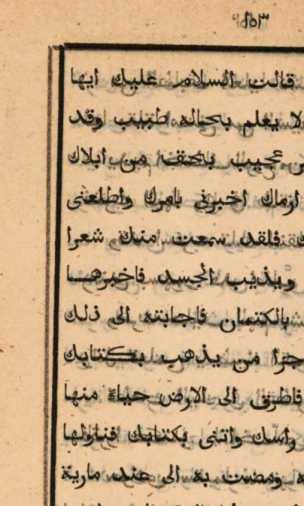 قالت السلام عليك ايها
لا يعلم بحاله طبيب وقد
عجيب يتحقف من ابلاك
ازماك اخبرني بامرك واطلعني
فلقد سمعت منك شعرا
ويذيب الجسد فاخبرها
بالكتمان فاجابته الى ذلك
جرا من يذهب بكتابك
فاطرق الى الارض حياء منها
راسك واتنى بكتابك فناولها
ومضت به الى عند مارية